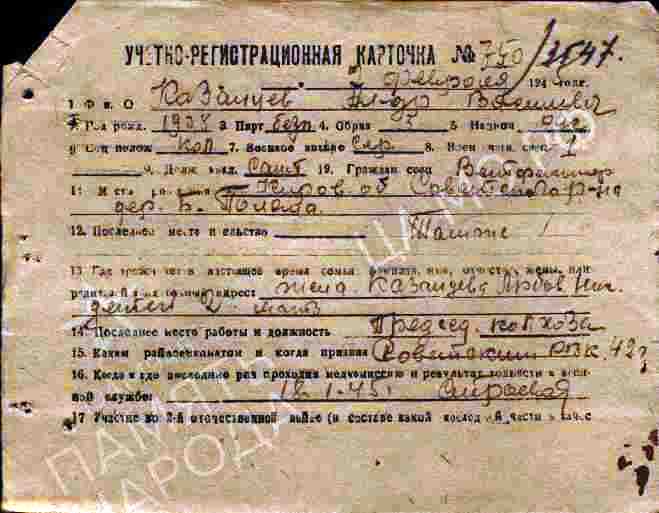 УЧЕТНО-РЕГИСТРАЦИОННАЯ КАРТОЧКА № 750/2547.
февраля 194 года.
1 Ф и О Казанцев Федор Васильевич
2. Год рожд. 1908 3. Парт безп 4. Образ 5 5. Национ.
6. Соц полож кол 7. Военное звание Сер. 8. Номен чипа спец. 1
9. Долж квал. Сант 10. Граждан спец Ветфельдшер
11. Место рождения Киров об Советского р-на
дер. Б. Полома
12. Последнее место жительство Там же
13 Где проживает в настоящее время семья фамилия, имя, отчество жены, или
родителей и их точный адрес жена. Казанцева Любов Ник.
детей 2 мать
14. Последнее место работы и должность Председ. колхоза
15. Каким райвоенкоматом и когда призван Советским РВК. 42 г
16. Когда и где последние раз проходил медкомиссию и результат годности к воен-
ной службе 18.1-45 г. Строевая
17 Участие во 2-й отечественной войне (в составе какой последней части в качес
ПАМЯТЬ НАРОДА
ЦАМО РФ